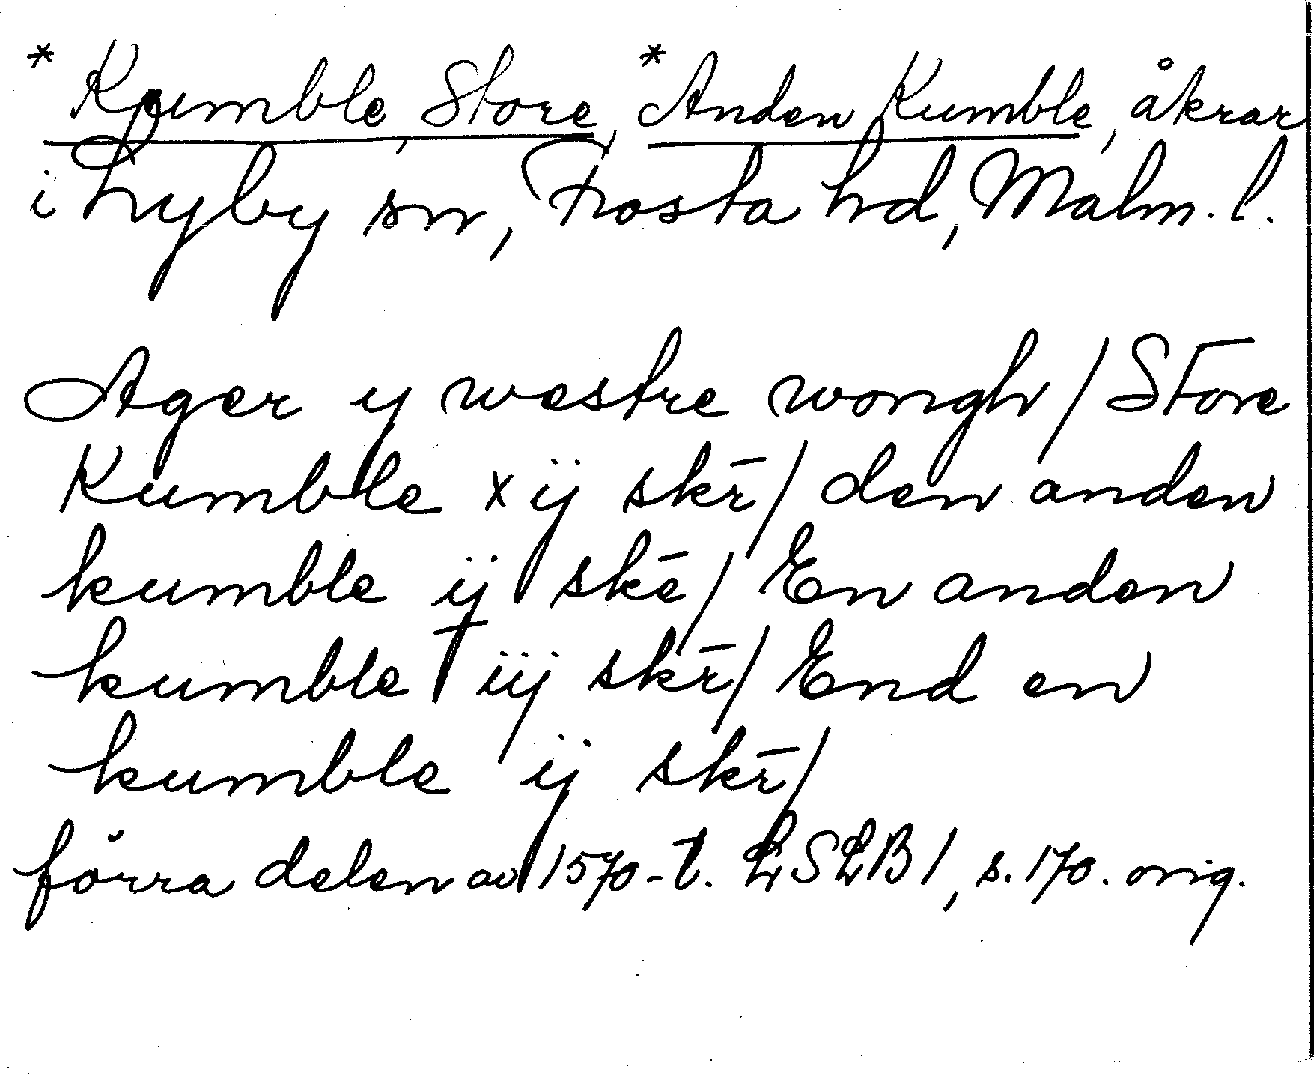 * Kumble, Store, * Anden Kumble, åkrar
i Lyby sn, Frosta hd, Malm. l.
Ager y westre wongh / Store
Kumble xij skr̄ / den anden
kumble ij skē / En anden
kumble iij skr̄ / End en
kumble ij skr̄ /
förra delen av 1570-t. LSLB 1, s. 170. orig.